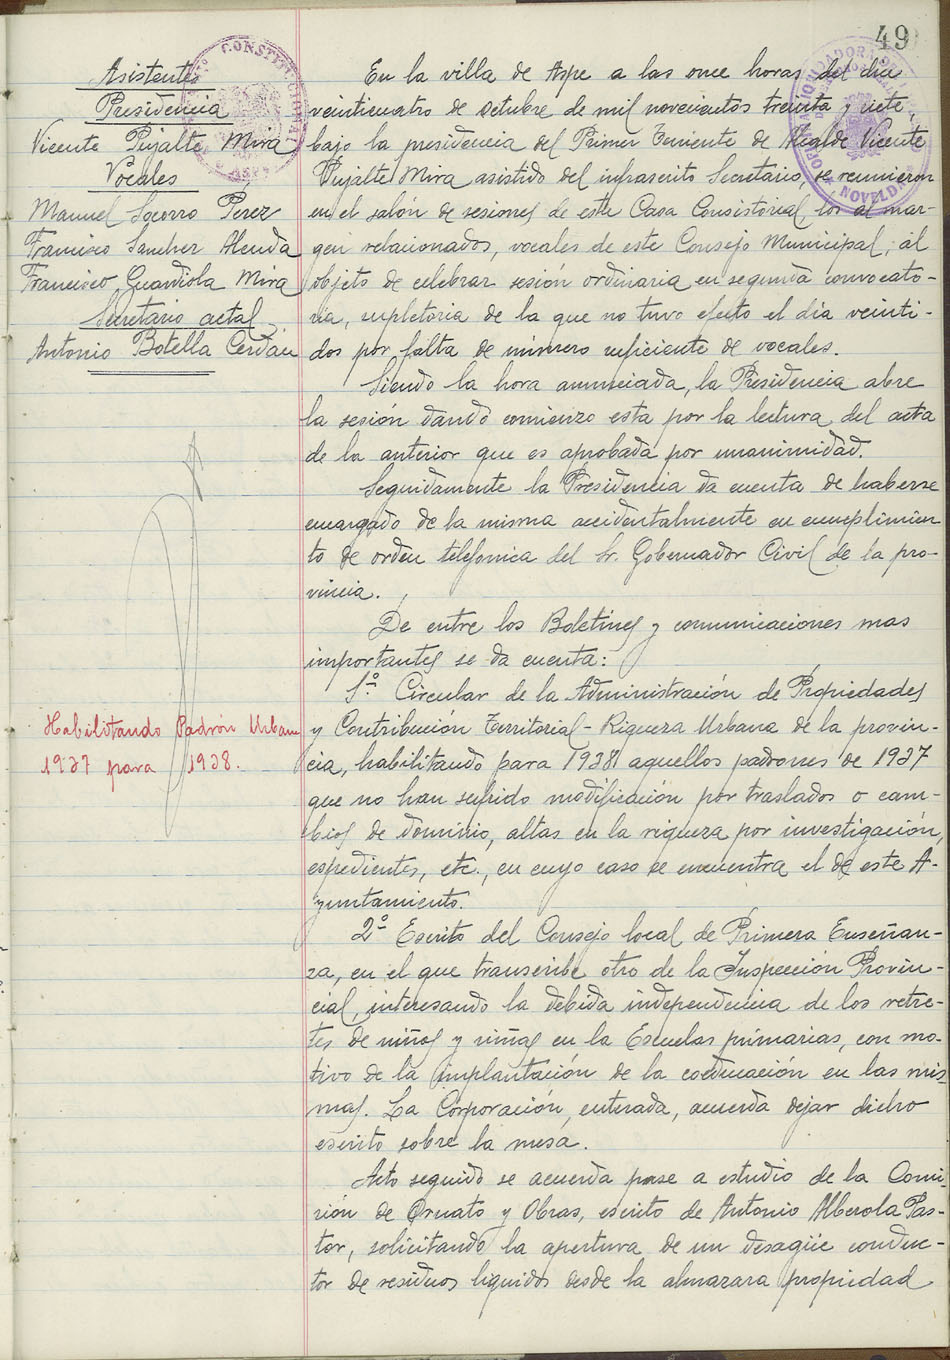 49
Asistentes
Presidencia
Vicente Pujalte Mira
Vocales
Manuel Socorro Pérez
Francisco Sanchez Alenda
Francisco Guardiola Mira
Secretario actal
Antonio Botella Cerdán
En la villa de Aspe a las once horas del dia
veinticuatro de octubre de mil novecientos treinta y siete,
bajo la presidencia del Primer Teniente de Alcalde Vicente
Pujalte Mira asistido del infrascrito Secretario, se reunieron
en el salón de sesiones de este Casa Consistorial, los al mar-
gen relacionados, vocales de este Consejo Municipal, al
objeto de celebrar sesión ordinaria en segunda convocato-
ria, supletoria de la que no tuvo efecto el día veinti-
dos por falta de número suficiente de vocales.
Siendo la hora anunciada, la Presidencia abre
la sesión dando comienzo esta por la lectura del acta
de la anterior que es aprobada por unanimidad.
Seguidamente la Presidencia da cuenta de haberse
encargado de la misma accidentalmente en cumplimien
to de orden telefonica del Sr. Gobernador Civil de la pro-
vincia.
De entre los Boletines y comunicaciones mas
importantes se da cuenta:
1º Circular de la Administración de Propiedades
y Contribución Territorial-Riqueza Urbana de la provin-
cia, habilitando para 1938 aquellos padrones de 1937
que no han sufrido modificación por traslados o cam-
bios de dominio, altas en la riqueza por investigación,
espedientes, etc., en cuyo caso se encuentra el de este A-
yuntamiento.
Habilitando Padrón Urbana
1937 para 1938.
2º Escrito del Consejo local de Primera Enseñan-
za, en el que transcribe otro de la Inspección Provin-
cial, interesando la debida independencia de los retre-
tes de niños y niñas en la Escuelas primarias, con mo-
tivo de la implantación de la coeducación en las mis
mas. La Corporación, enterada, acuerda dejar dicho
escrito sobre la mesa.
Acto seguido se acuerda pase a estudio de la Comi-
sión de Ornato y Obras, escrito de Antonio Alberola Pas-
tor, solicitando la apertura de un desagüe conduc-
tor de residuos liquidos desde la almazara propiedad
CONSTITUCIONAL
ASPE
NOVELDA